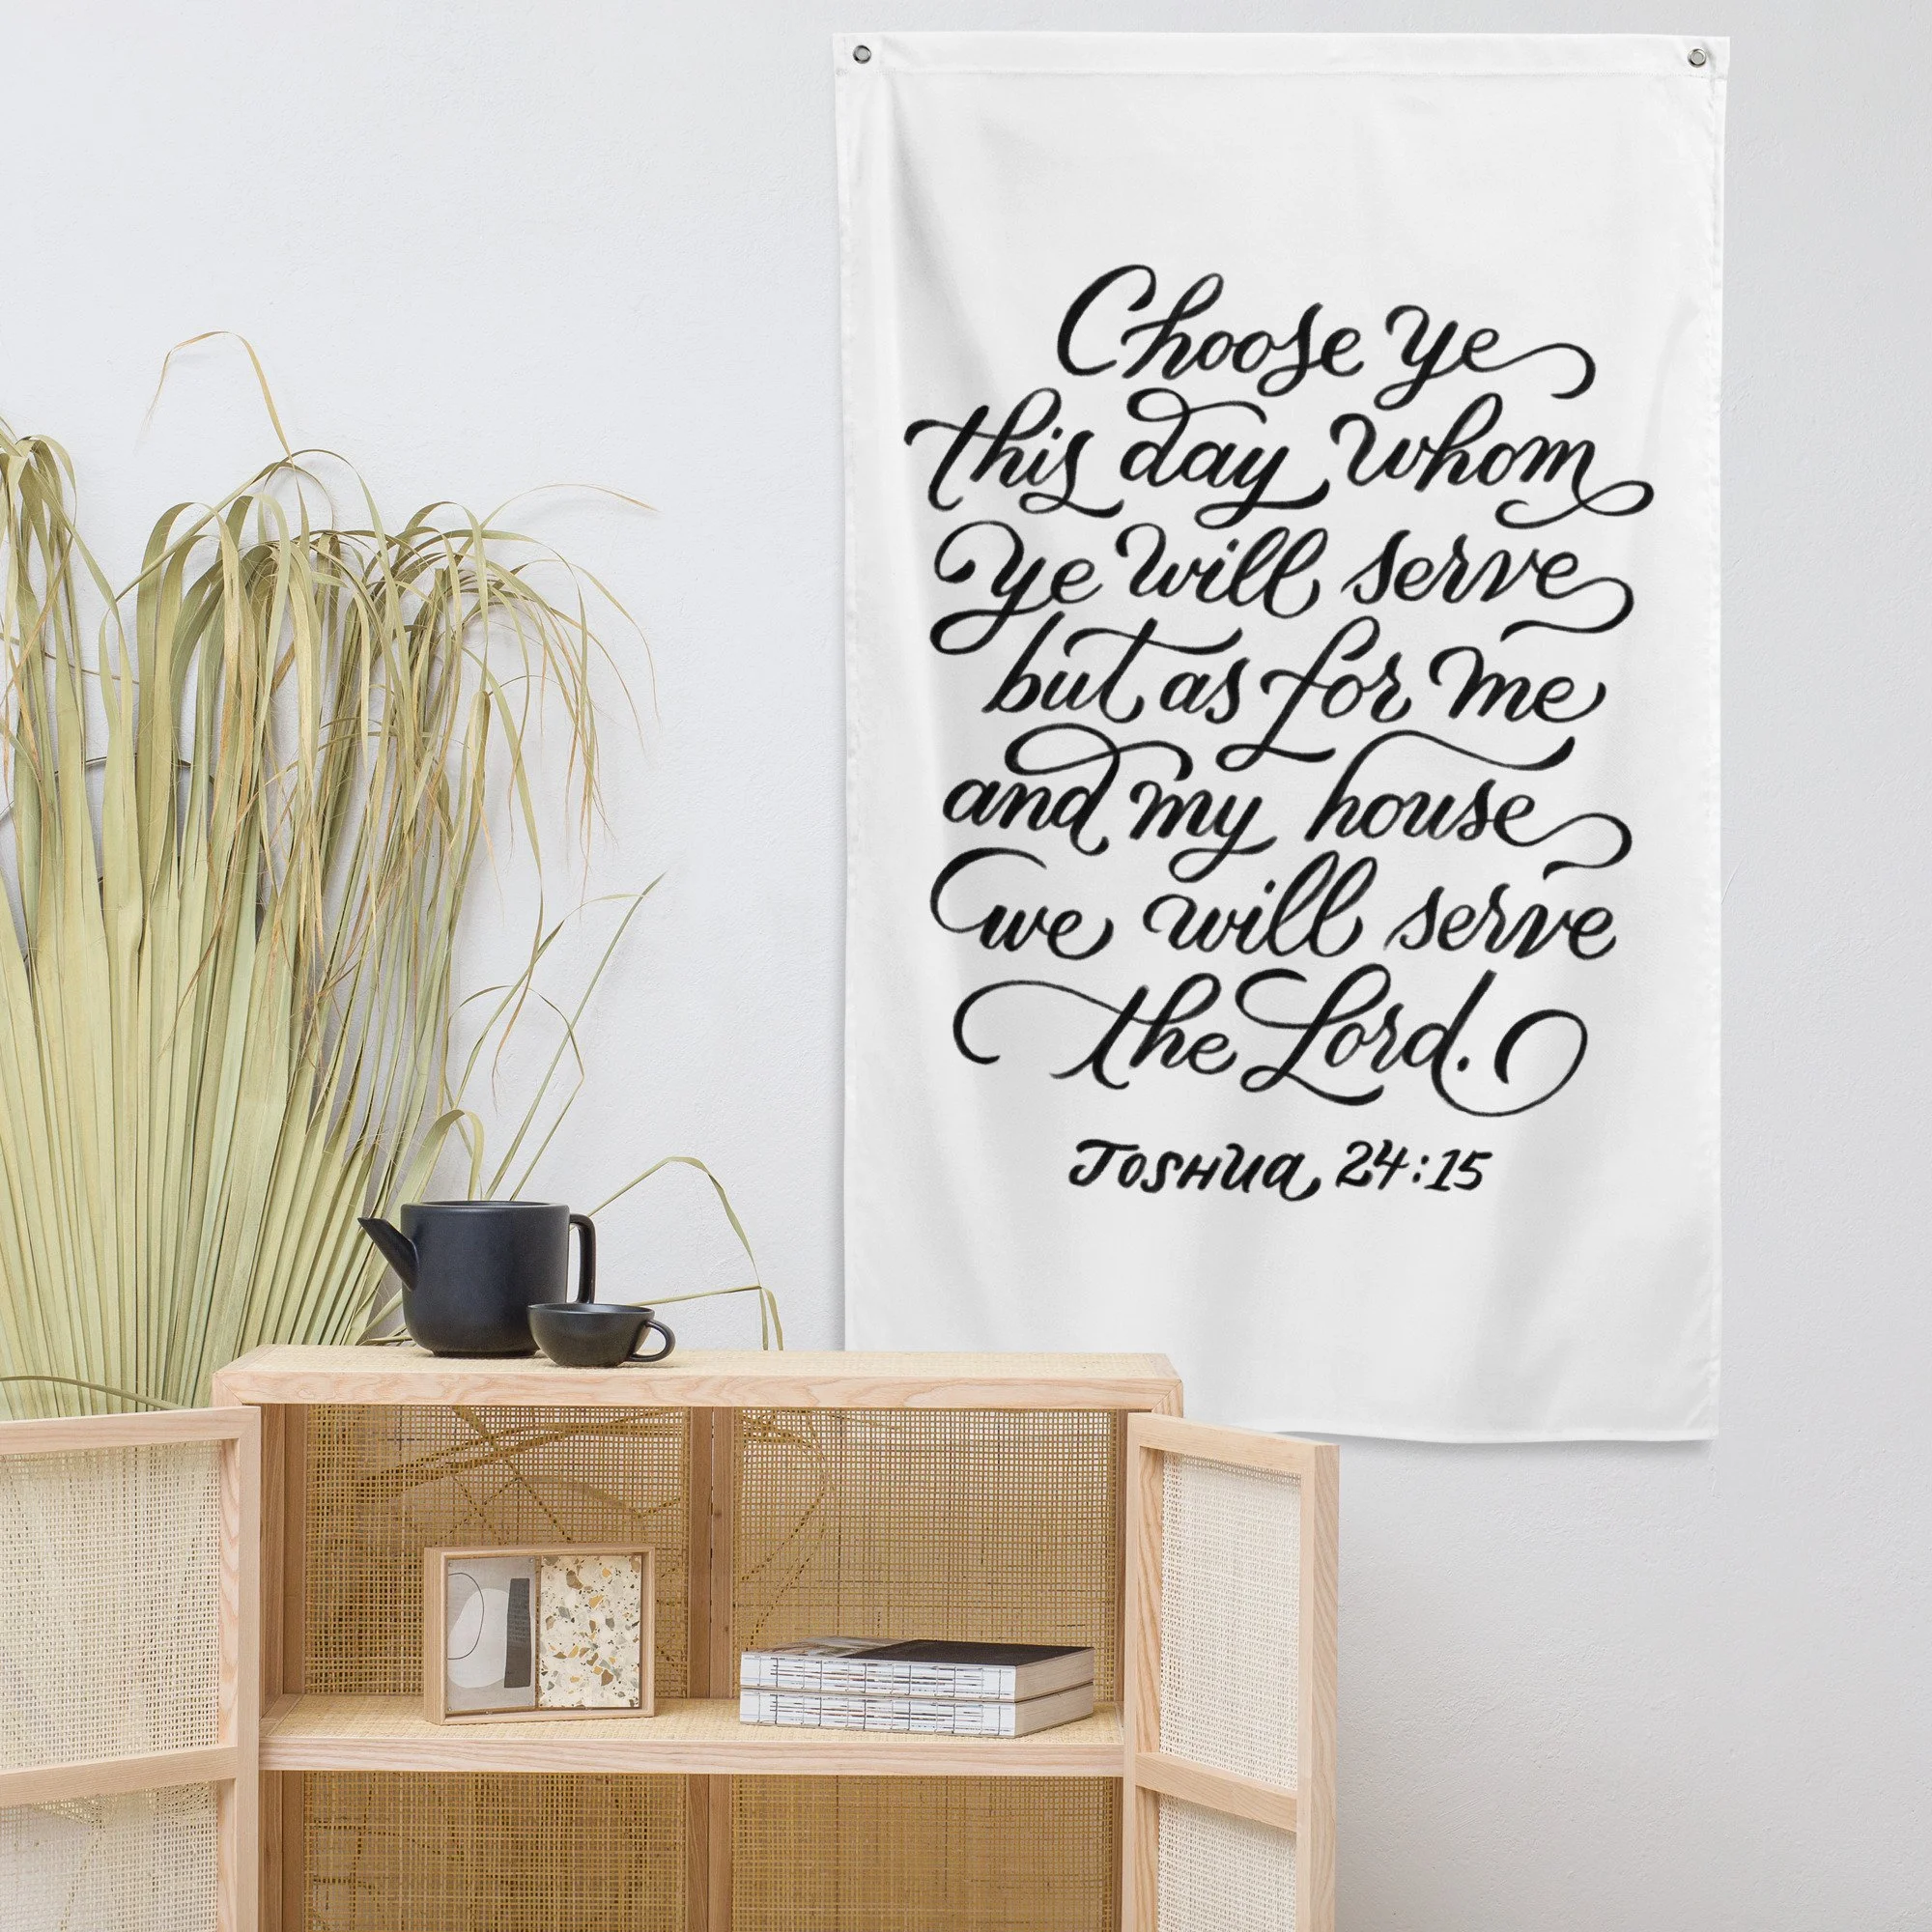 Choose ye
this day whom
ye will serve
but as for me
and my house
we will serve
the Lord.
Joshua 24:15